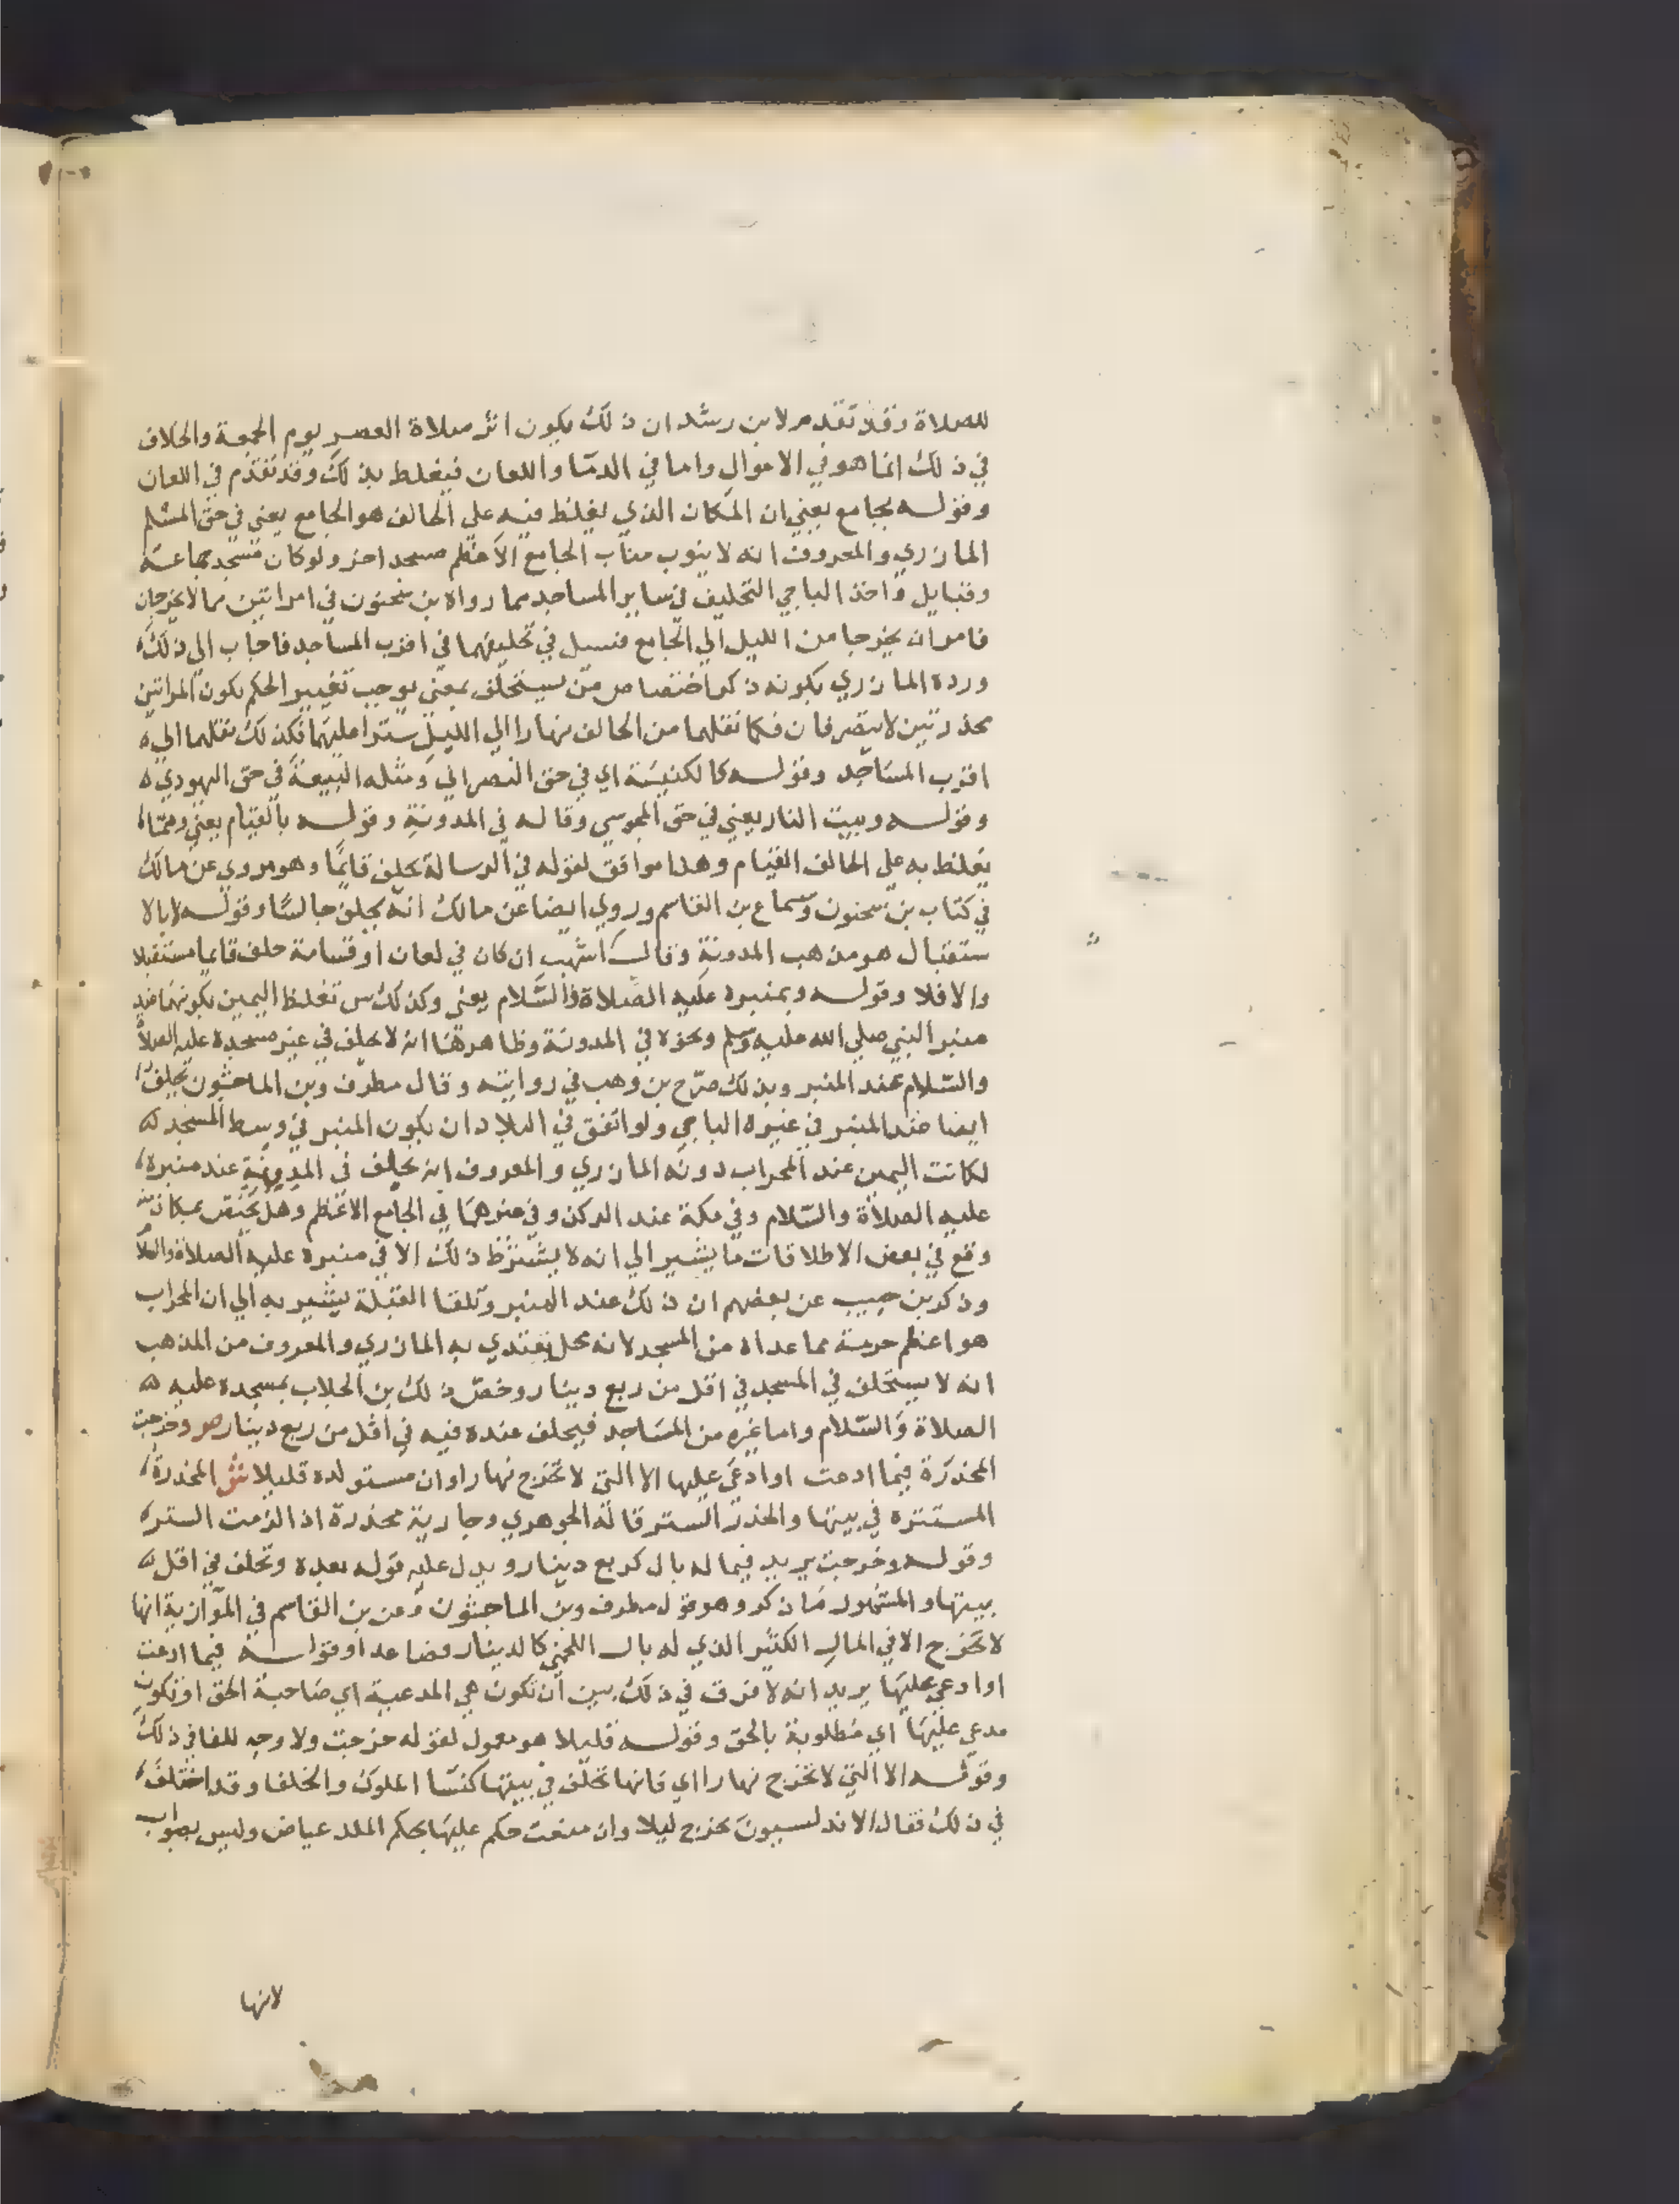 للصلاة وقد تقدم لابن رشد ان ذلك يكون اثر صلاة العصر يوم الجمعة والخلاف
في ذلك انما هو في الاموال واما في الدما واللعان فيغلط بذلك وقد تقدم في اللعان
وقوله بجامع يعني ان المكان الذي يغلظ فيه علي الحالف هو الجامع يعني في حق المسلم
المازري والمعروف انه لا ينوب مناب الجامع الاعظم مسجد اخر ولو كان مسجد جماعة
وقبايل واخذ الباجي التحليف في ساير المساجد مما رواه بن سحنون في امراتين مما لا يخرجان
فامر ان يخرجا من الليل الي الجامع فسيل في تحليفهما في اقرب المساجد فاجاب الي ذلك
ورده المازري بكونه ذكر اختصاص من يستحلف بمعني يوجب تغيير الحكم بكون المراتين
مخدرتين لا يتصرفان فكما نقلهما من الحالف نهارا الي الليل سترا عليهما فكذلك نقلهما الي
اقرب المساجد وقوله كالكنيسة اي في حق النصراني ومثله البيعة في حق اليهودي
وقوله وبيت النار يعني في حق المجوسي وقاله في المدونة وقوله بالقيام يعني ومما
يغلظ به علي الحالف القيام وهذا موافق لقوله في الرسالة يحلف قايما وهو مروي عن مالك
في كتاب بن سحنون وسماع بن القاسم وروي ايضا عن مالك انه يحلف جالسا وقوله لا بالا
ستقبال هو مذهب المدونة وقال اشهب ان كان في لعان او قسامة حلف قايما مستقبلا
والا فلا وقوله وبمنبره عليه الصلاة والسلام يعني وكذلك س تغلظ اليمين بكونها عند
منبر النبي صلي الله عليه وسلم ونحوه في المدونة وظاهرها انه لا يحلف في غير مسجده عليه الصلاة
والسلام عند المنبر وبذلك صرح بن وهب في روايته وقال مطرف وبن الماجشون يحلف
ايضا عند المنبر في غيره الباجي ولو اتفق في البلاد ان يكون المنبر في وسط المسجد
لكانت اليمين عند المحراب دونه المازري والمعروف انه يحلف في المدينة عند منبره
عليه الصلاة والسلام وفي مكة عند الركن وفي غيرهما في الجامع الاعظم وهل يختص بمكان منه
وقع في بعض الاطلاقات ما يشير الي انه لا يشترط ذلك الا في منبره عليه الصلاة والسلام
وذكر بن حبيب عن بعضهم ان ذلك عند المنبر وتلقا القبلة يشير به الي ان المحراب
هو اعظم حرمة مما عداه من المسجد لانه محل يقتدي به المازري والمعروف من المذهب
انه لا يستحلف في المسجد في اقل من ربع دينار وخص ذلك بن الجلاب بمسجده عليه
الصلاة والسلام واما غيره من المساجد فيحلف عنده فيه في اقل من ربع دينار ص وخرجت
المخدرة فيما ادعت او ادعي عليها الا التي لا تخرج نهارا وان مستولدة قليلا ش المخدرة
المستترة في بيتها والخدر الستر قاله الجوهري وجارية مخدرة اذا لزمت الستر
وقوله وخرجت يريد فيما له بال كربع دينار ويدل عليه قوله بعده وتحلف في اقل
ببيتها والمشهور ما ذكر وهو قول مطرف وبن الماجشون وعن بن القاسم في الموازية انها
لا تخرج الا في المال الكثير الذي له بال اللخمي كالدينار فصاعدا وقوله فيما ادعت
او ادعي عليها يريد انه لا فرق في ذلك بين ان تكون هي المدعية اي صاحبة الحق او تكون
مدعي عليها اي مطلوبة بالحق وقوله قليلا هو معمول لقوله خرجت ولا وجه للفا في ذلك
وقوله الا التي لا تخرج نهارا اي فانها تحلف في بيتها كنسا الملوك والخلفا وقد اختلف
في ذلك فقال الاندلسيون تخرج ليلا وان منعت حكم عليها بحكم الملد عياض وليس بصواب
لانها